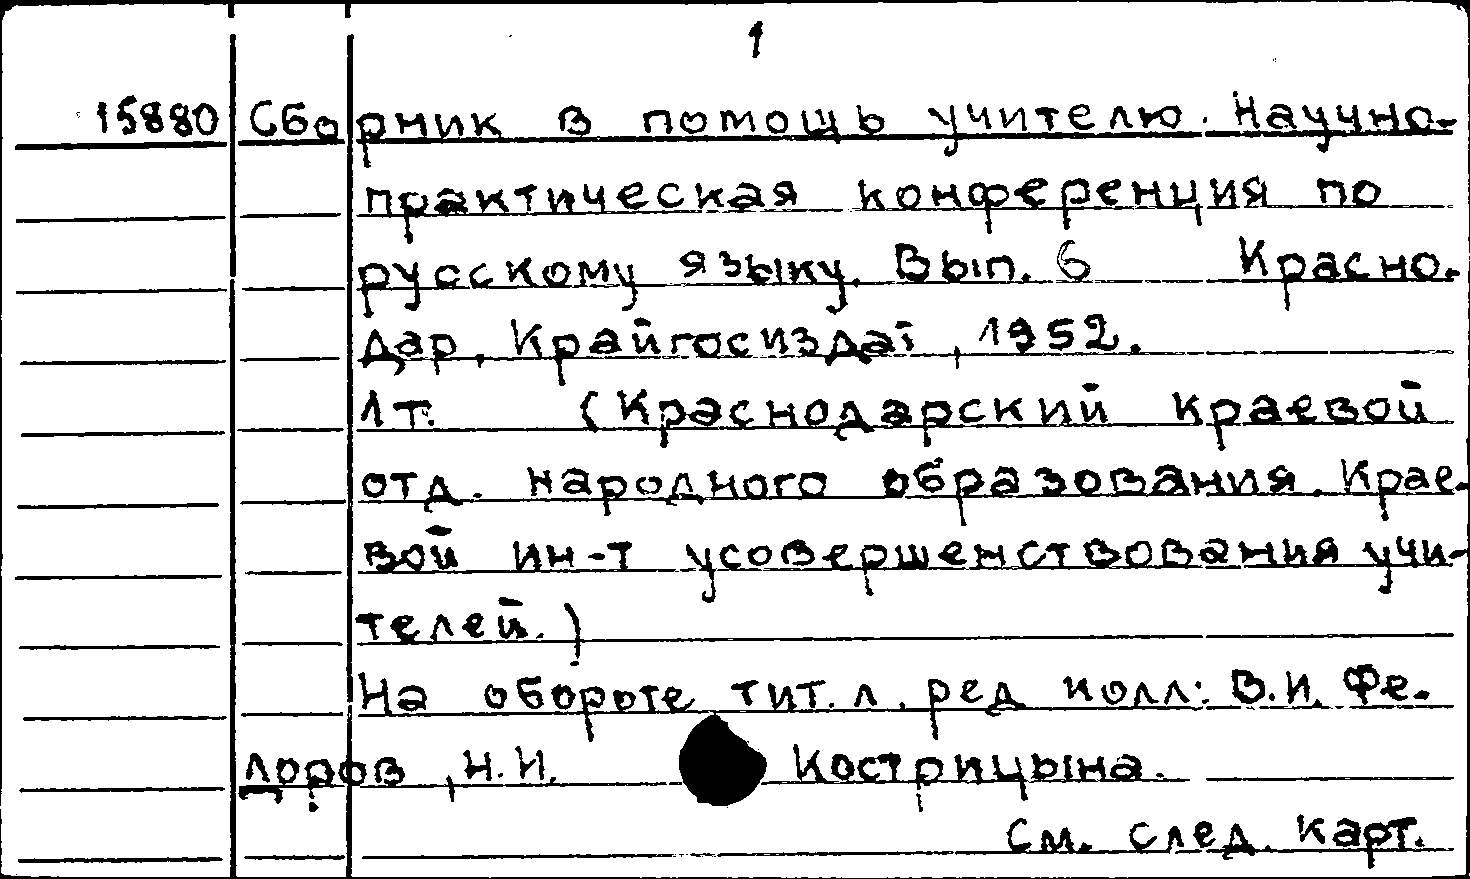 1
15880 Сборник в помощь учителю. Научно-
практическая конференция по
русскому языку. Вып. 6 Красно-
дар, Крайгосиздат, 1952.
1 т. (Краснодарский краевой
отд. народного образования. Крае-
вой ин-т усовершенствования учи-
телей.)
На обороте тит. л. ред колл: В.И. Фе-
доров, Н.И. Кострицына.
См. след. карт.